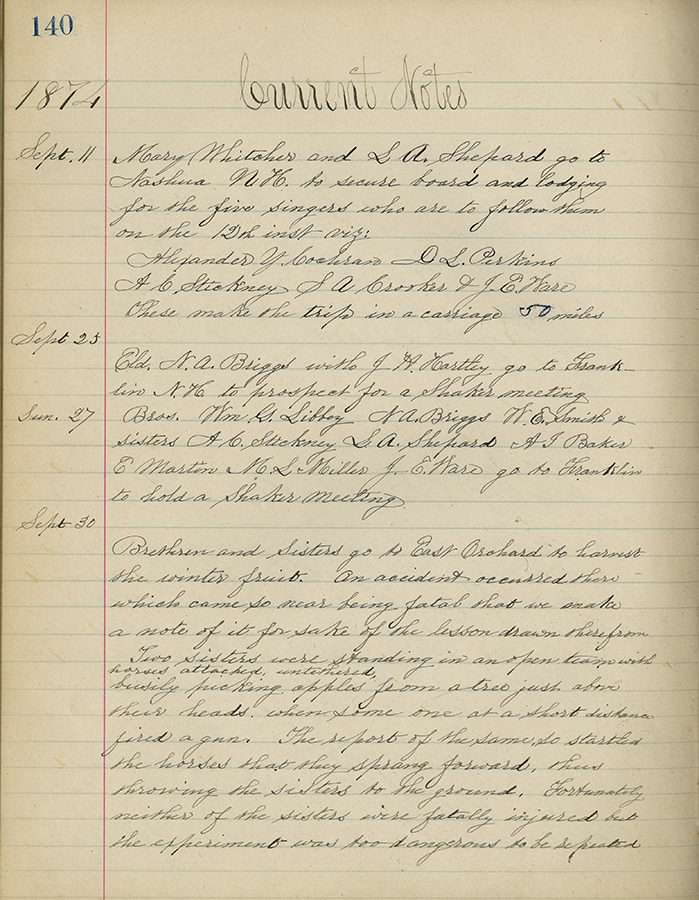 140
Current Notes
1874
Sept. 11 Mary Whitcher and L A. Shepard go to
Nashua N H. to secure board and lodging
for the five singers who are to follow them
on the 12th inst viz:
Alexander Y. Cochran D L. Perkins
A C Stickney J A Crooker & J. E. Ware
These make the trip in a carriage 50 miles
Sept 25
Eld. N. A. Briggs with J H. Hartley go to Frank-
lin N. H. to prospect for a Shaker meeting
Sun. 27 Bros. Wm G. Libbey N A. Briggs W. E. Smith &
Sisters A C. Stickney L. A. Shepard A J Baker
E Martin M. L Miller J. E. Ware go to Franklin
to hold a Shaker Meeting
Sept 30
Brethren and Sisters go to East Orchard to harvest
the winter fruit. An accident occurred there
which came so near being fatal that we make
a note of it for sake of the lesson drawn therefrom
Two sisters were standing in an open team with
horses attached, untethered,
busily picking apples from a tree just above
their heads. when some one at a short distance
fired a gun. The report of the same, so startled
the horses that they sprang forward, thus
throwing the sisters to the ground. Fortunately
neither of the sisters were fatally injured but
the experiment was too dangerous to be repeated